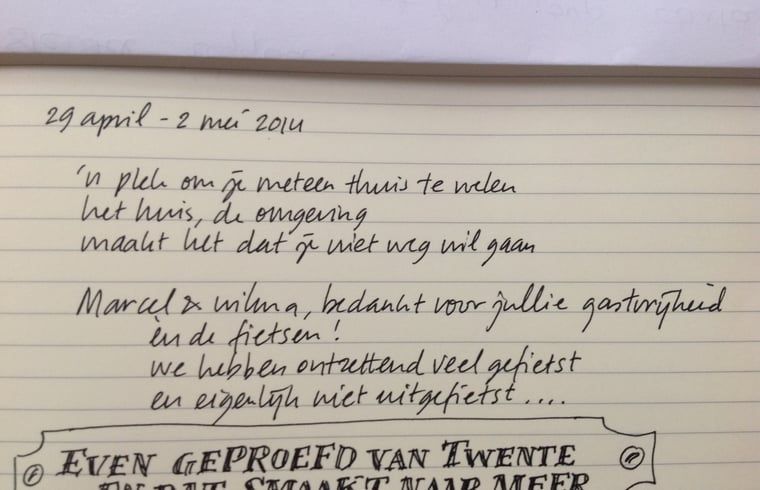 29 april - 2 mei 2014
'n plek om je meteen thuis te voelen
het huis, de omgeving
maakt het dat je niet weg wil gaan
Marcel & Wilma, bedankt voor jullie gastvrijheid
èn de fietsen!
we hebben ontzettend veel gefietst
en eigenlijk niet uitgefietst....
EVEN GEPROEFD VAN TWENTE
EN DAT SMAAKT NAAR MEER